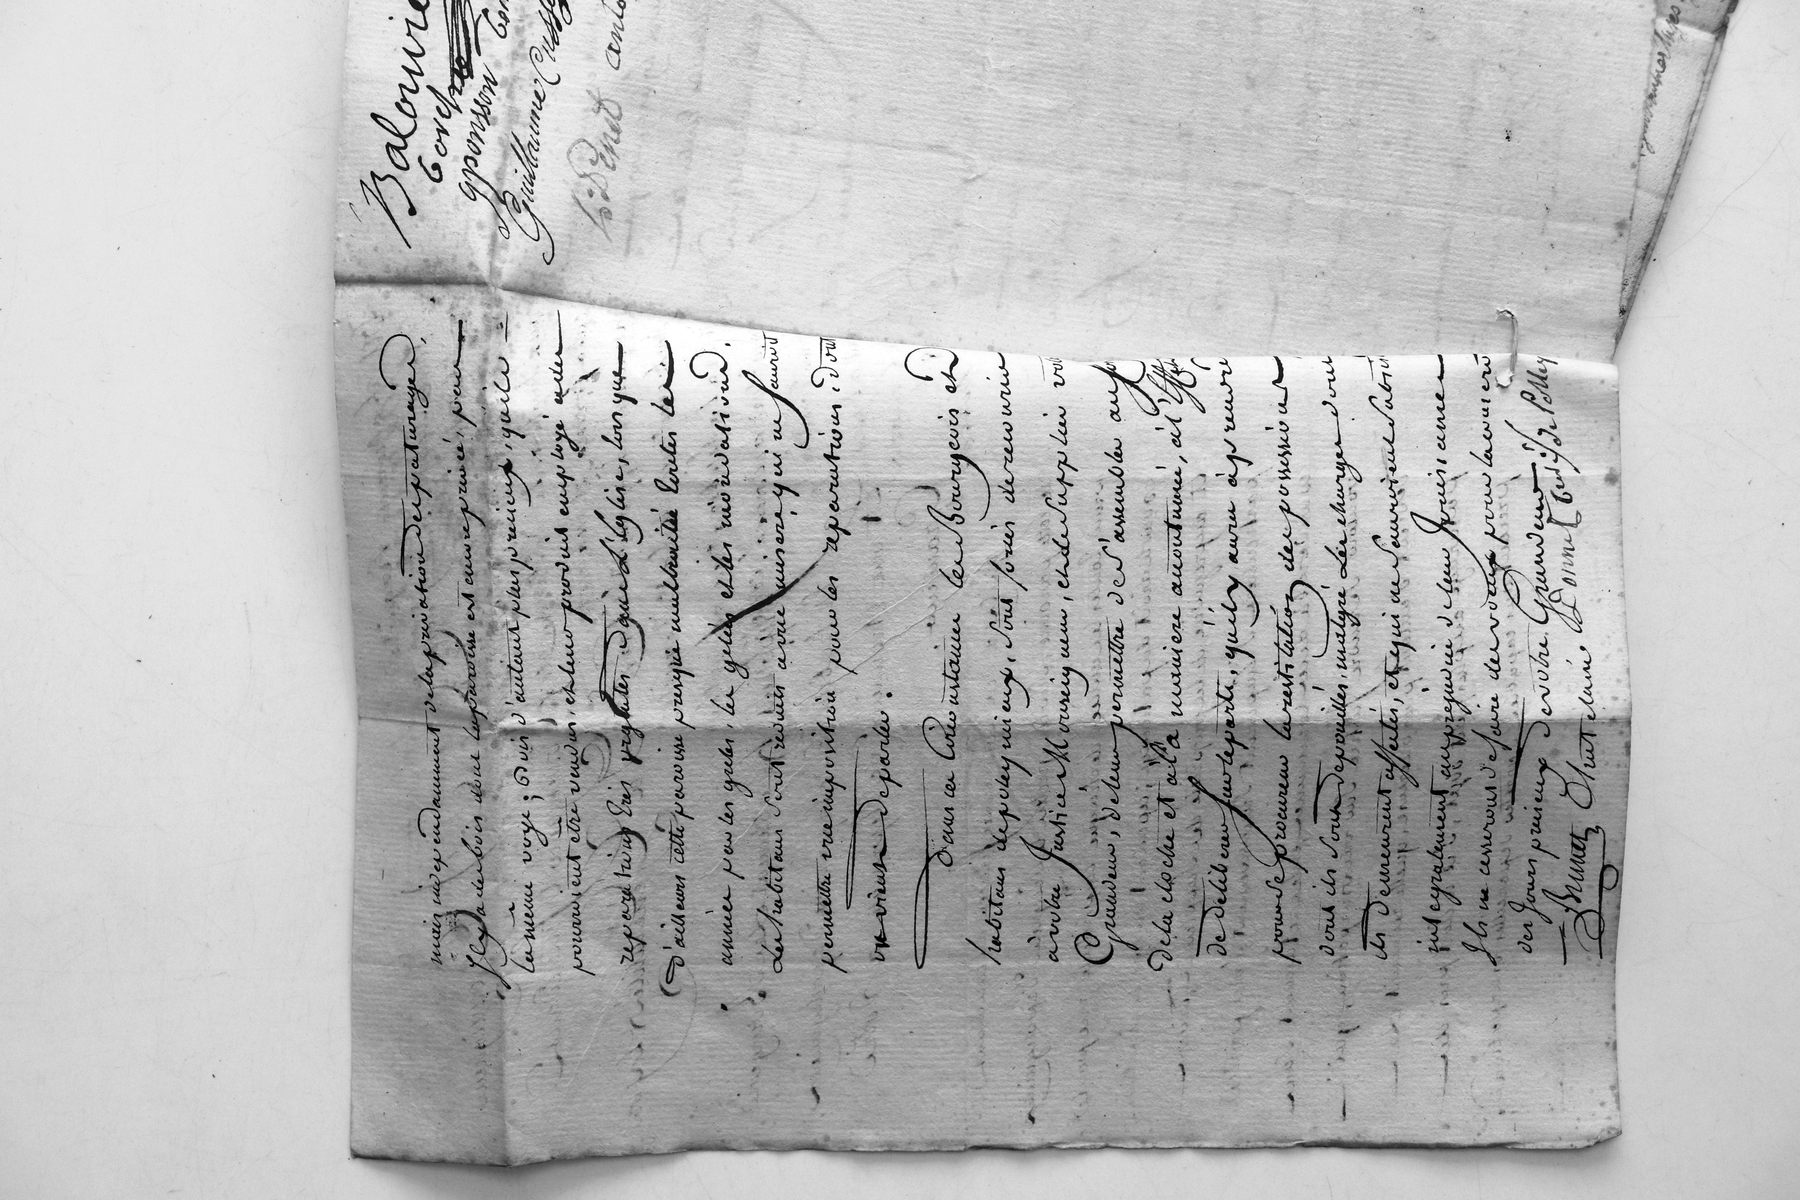 mais independament de la privation des paturages,
Il y a des bois dont la paroisse est encore privée, par
la même voye; bois d'autant plus precieux, qu'ils
pourroient etre vendus, et leur produit employé aux
reparations très urgentes, dont l'église, lors que
d'ailleurs cette paroisse presque maltraitée toutes les
années par les greles, les gelés et les inondations,
Les habitans sont reduits a une misere, qui ne sauroit
permettre une imposition pour les reparations, dont
on vient de parler.
Dans ces Circonstances les Bourgeois et
habitans de poleymieux, sont forcés de recourir
à votre Justice Monseigneur, et de supplier votre
Grandeur, de leur permettre de s'assembler au son
de la cloche et a la maniere accoutumée, à l'effet
de deliberer sur le parti, qu'il y aura à prendre
pour se procurer la restitution des possessions
dont ils sont depouillés, malgré les charges dont
ils demeurent affectés, et qui ne sauroient subsister
integralement au prejudice de leur Jouissance
Ils ne cesseront de faire des vœux pour la conservation
des Jours precieux de votre Grandeur
Brunet
Balouvie
gponsson
Guillaume